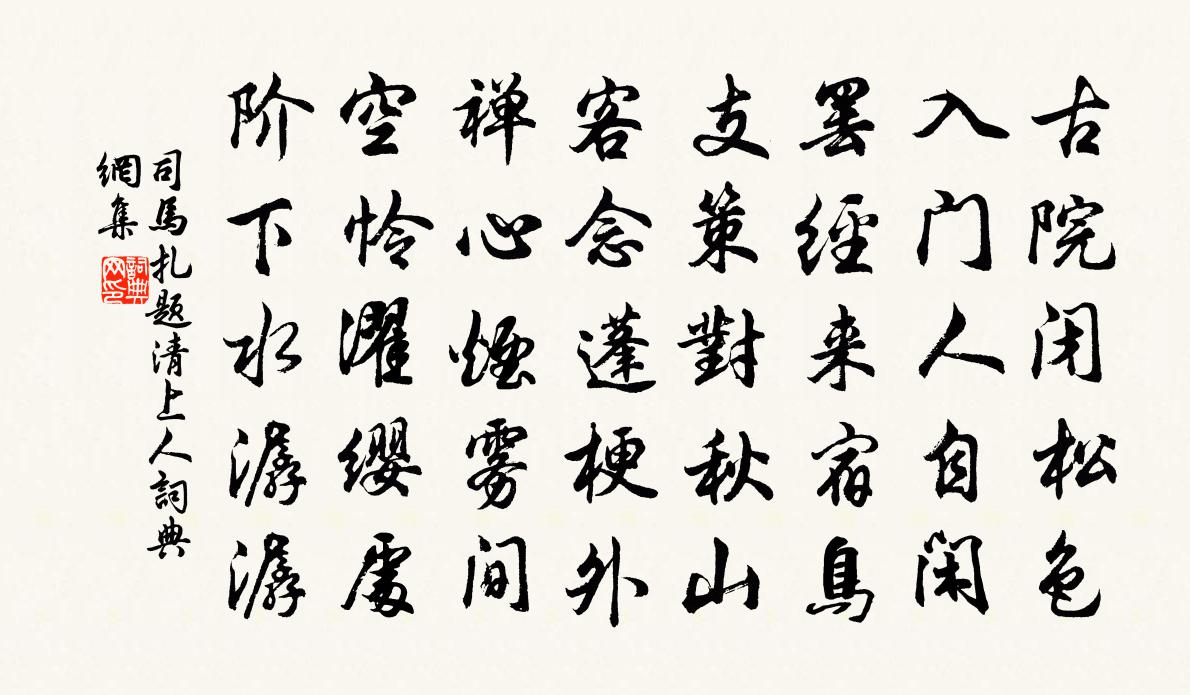 古院闭松色
入门人自闲
罢經来宿鳥
支策對秋山
客念蓬梗外
禅心煙雾间
空怜濯缨處
阶下水潺潺
司馬扎题清上人詞典
網集
詞典
网印